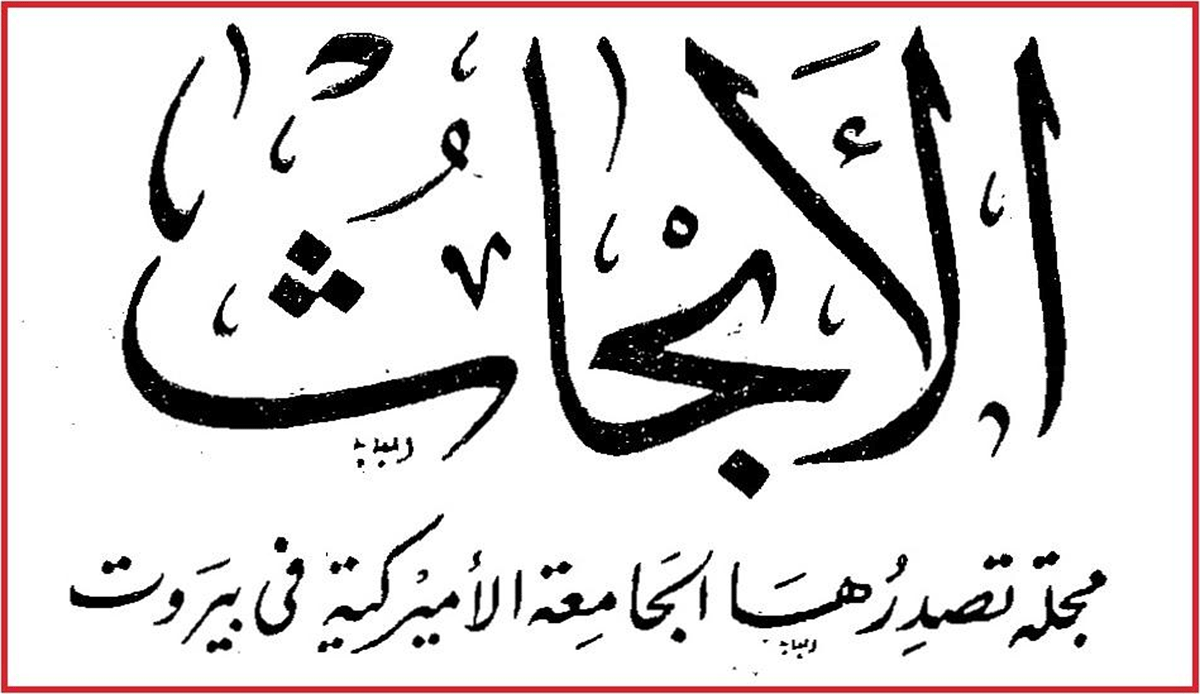 الأبحاث
مجلة تصدرها الجامعة الأميركية في بيروت